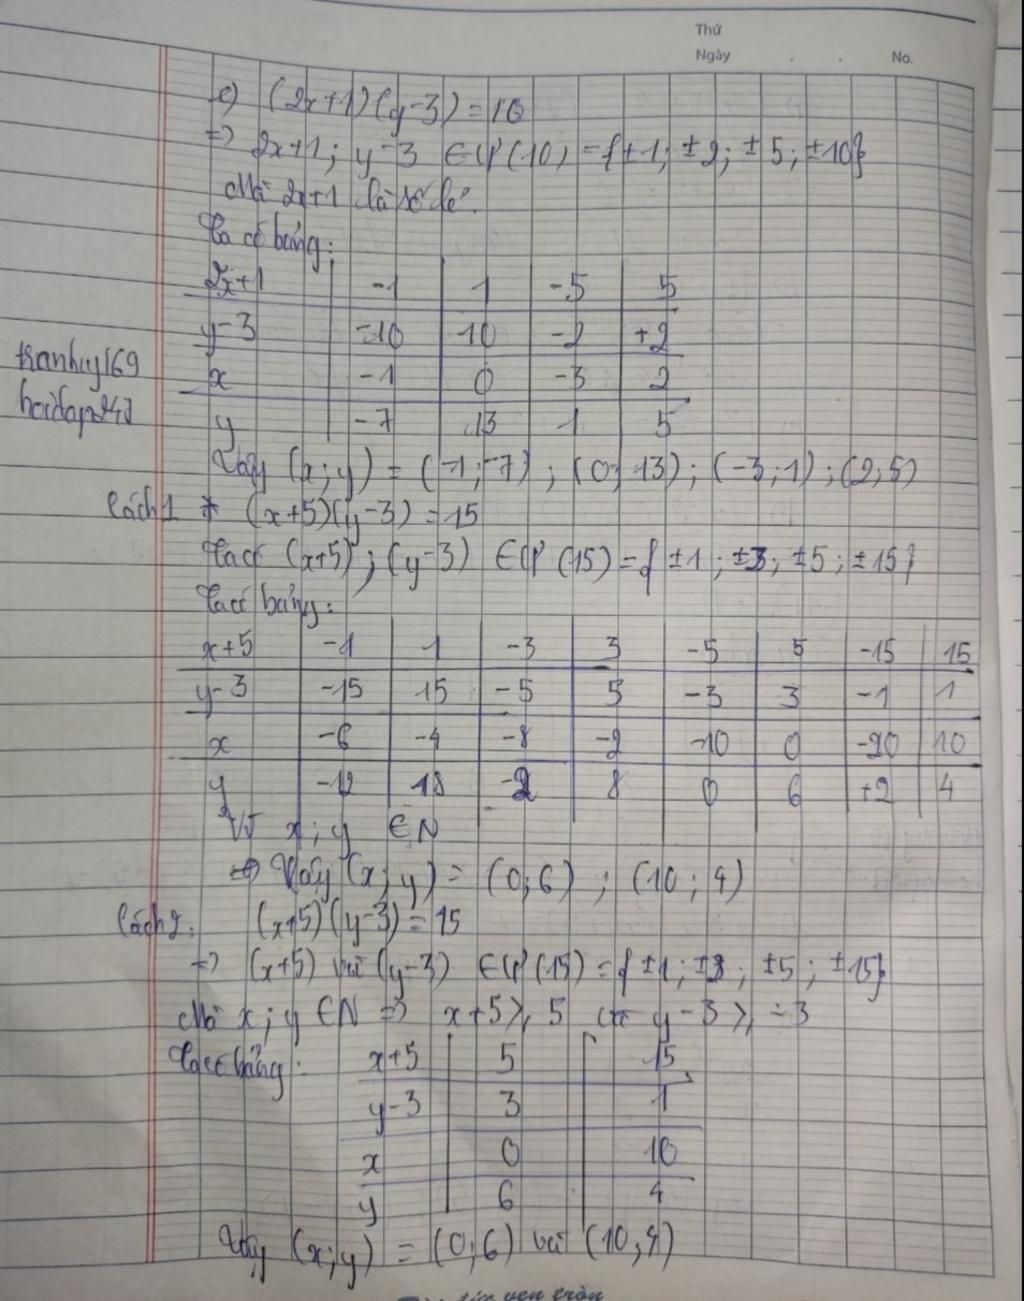 Thứ
Ngày . . No.
c) (2x+1)(y-3) = 10
=> 2x+1; y-3 ∈ Ư(10) = {±1; ±2; ±5; ±10}
Mà 2x+1 là số lẻ.
Ta có bảng:
2x+1 | -1 | 1 | -5 | 5
y-3 | -10 | 10 | -2 | +2
x | -1 | 0 | -3 | 2
y | -7 | 13 | 1 | 5
tranhuy169
hoidap247
Vậy (x;y) = (-1;-7); (0;13); (-3;1); (2;5)
Cách 1 * (x+5)(y-3) = 15
Ta có (x+5); (y-3) ∈ Ư(15) = {±1; ±3; ±5; ±15}
Ta có bảng:
x+5 | -1 | 1 | -3 | 3 | -5 | 5 | -15 | 15
y-3 | -15 | 15 | -5 | 5 | -3 | 3 | -1 | 1
x | -6 | -4 | -8 | -2 | -10 | 0 | -20 | 10
y | -12 | 18 | -2 | 8 | 0 | 6 | +2 | 4
Vì x; y ∈ N
=> Vậy (x; y) = (0;6) ; (10; 4)
Cách 2: (x+5)(y-3) = 15
=> (x+5) và (y-3) ∈ Ư(15) = {±1; ±3; ±5; ±15}
Mà x; y ∈ N => x+5 ≥ 5 y-3 ≥ -3
Ta có bảng:
x+5 | 5 | 15
y-3 | 3 | 1
x | 0 | 10
y | 6 | 4
Vậy (x;y) = (0;6) và (10;4)